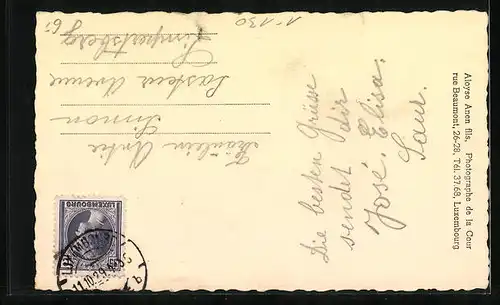 Aloyse Anen fils, Photographe de la Cour
rue Beaumont, 26-28, Tél. 37.68, Luxembourg
Die besten Grüsse
sendet dir
José. Elisa.
Fräulein
Simon
Pasteur Avenue
Limpertsberg
LUXEMBOURG
11.10.29